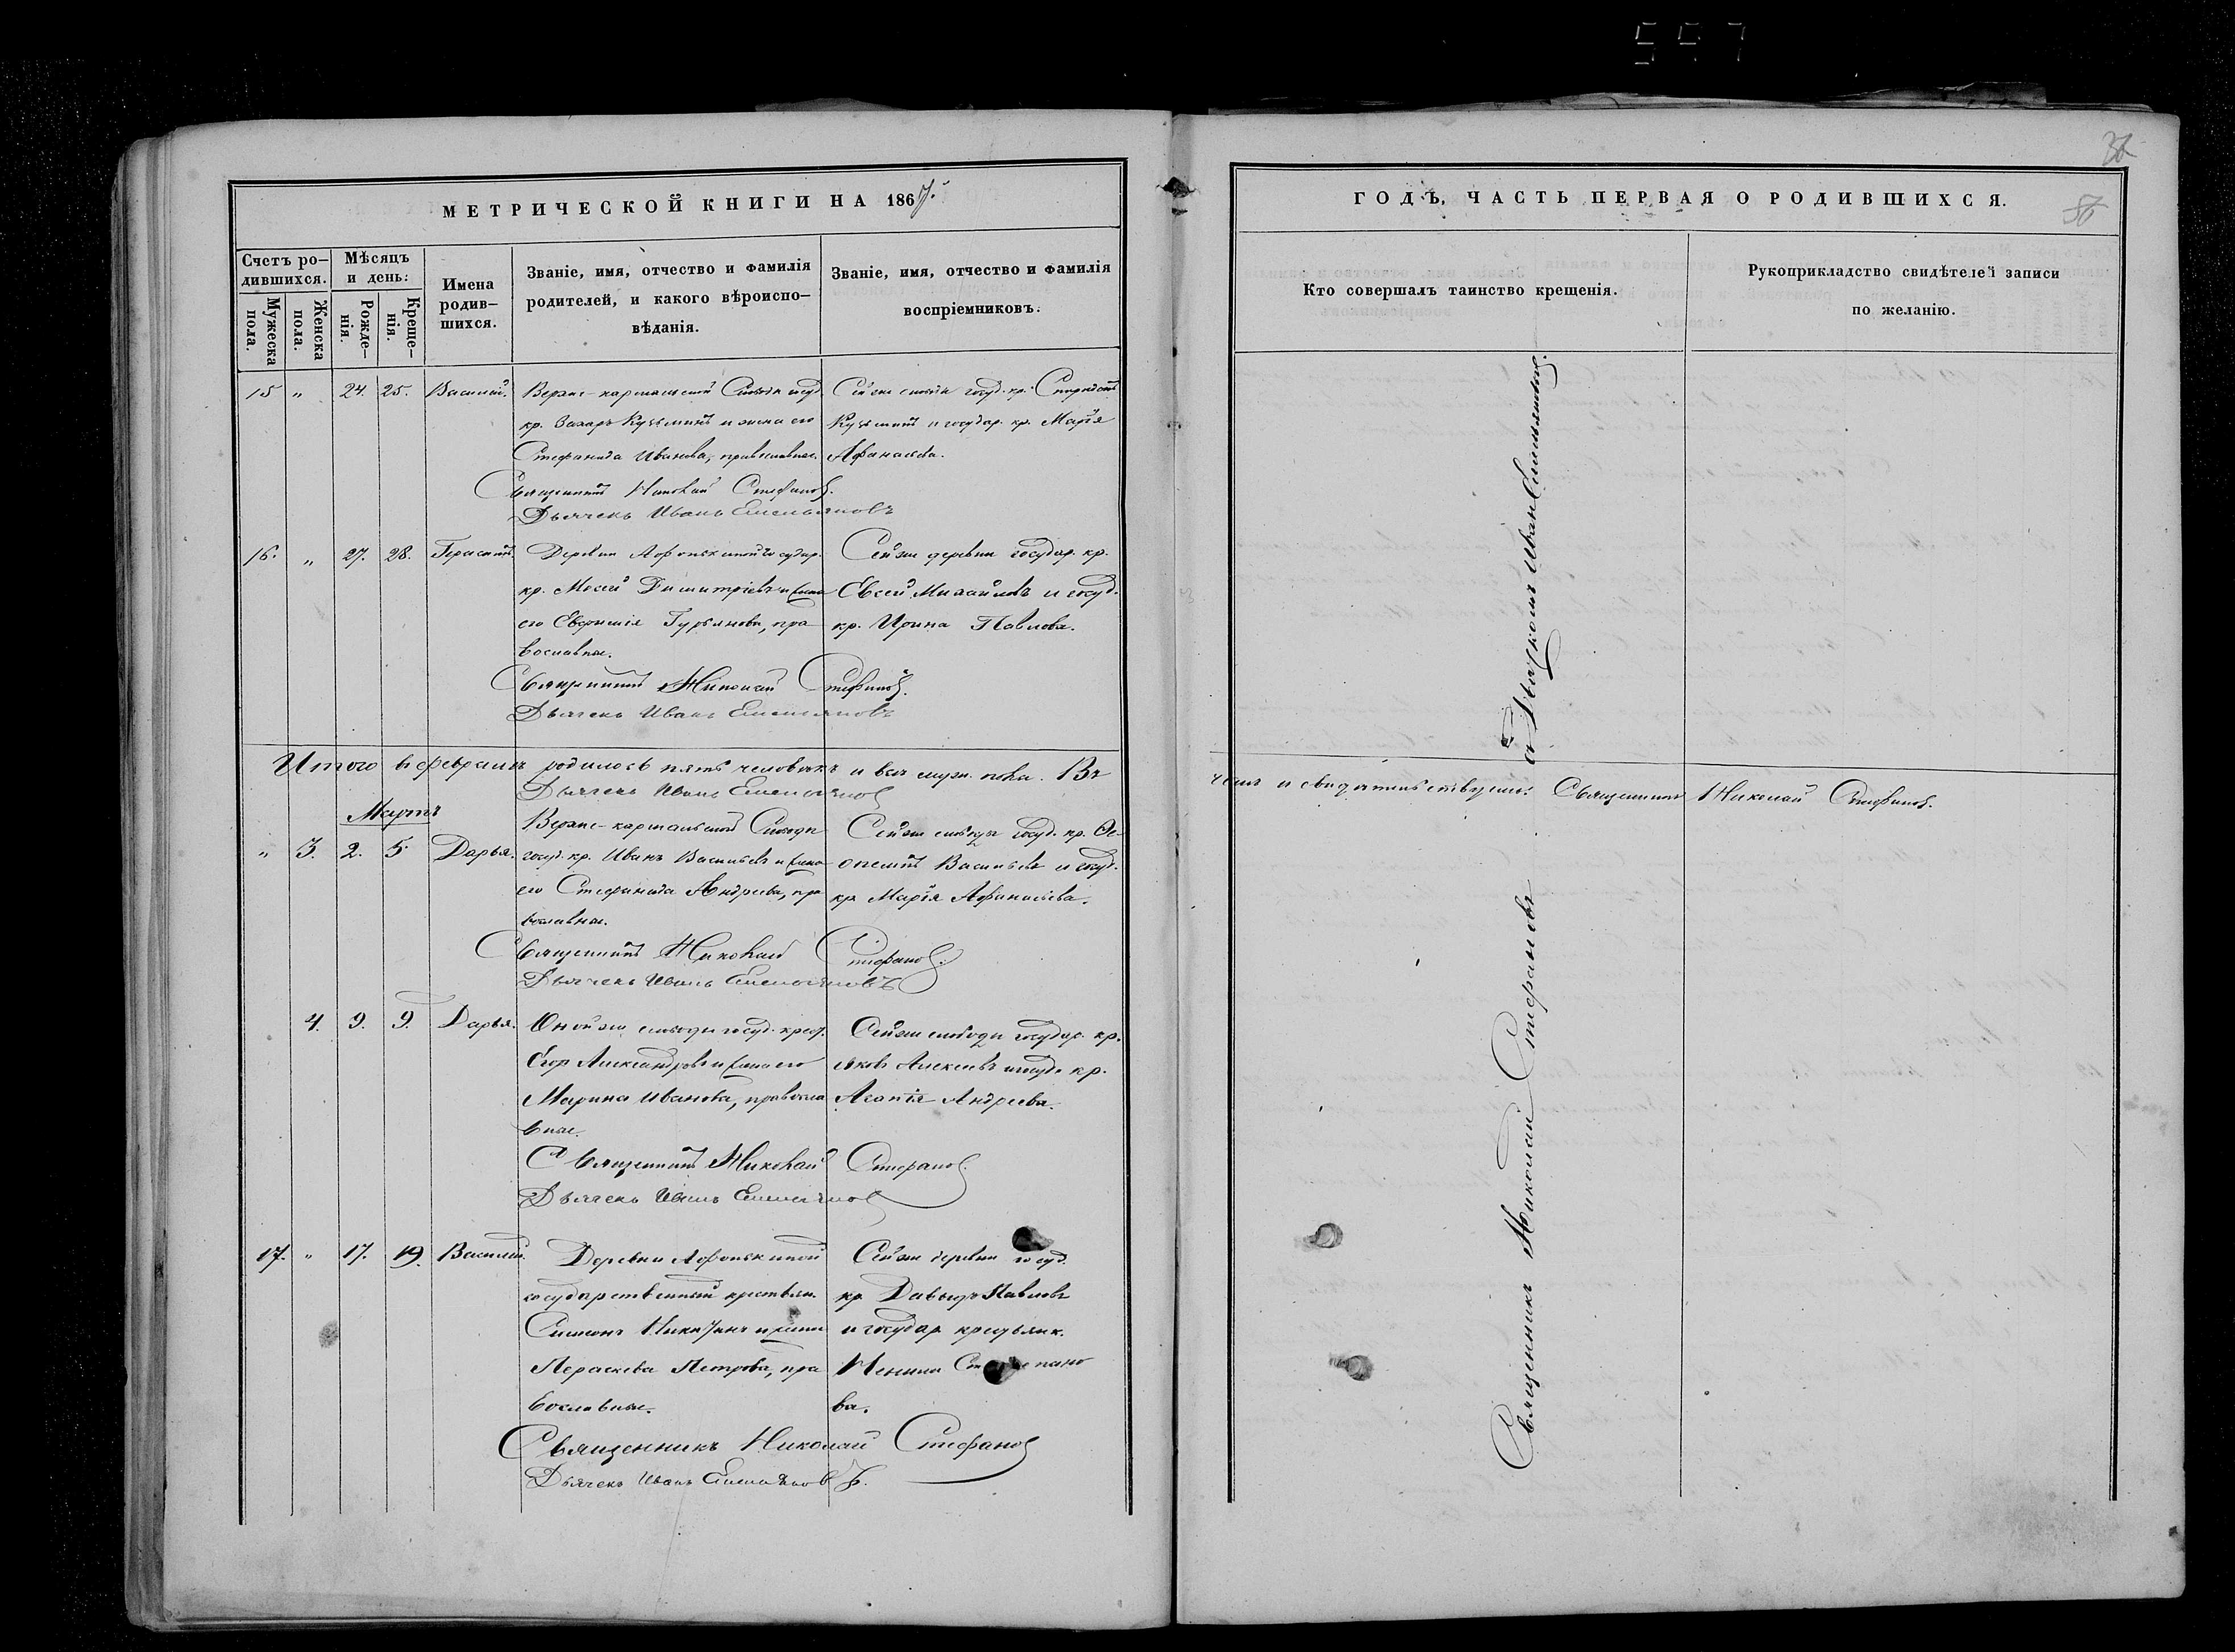 557
МЕТРИЧЕСКОЙ КНИГИ НА 1867.
Счетъ ро-
дившихся.
Мужеска
пола.
Женска
пола.
Мѣсяцъ
и день:
Рожде-
нія.
Креще-
нія.
Имена
родив-
шихся.
Званіе, имя, отчество и фамилія
родителей, и какого вѣроиспо-
вѣданія.
Званіе, имя, отчество и фамилія
воспріемниковъ.
15 " 24. 25. Василій.
кр. Захаръ Кузьминъ и жена его
Стефанида Иванова, православные.
Сей же слободы госуд. кр.
Кузьминъ и государ. кр. Марѳа
Афанасьева.
Священникъ Николай Стефановъ.
Дьячекъ Иванъ Емельяновъ
16. " 27. 28. Герасимъ.
Деревни Афонькиной государ.
кр. Моѵсей Димитріевъ и жена
его Евѳимія Гурьянова, пра
вославные.
Сей же деревни государ. кр.
Евсей Михайловъ и госуд.
кр. Ирина Павлова.
Священникъ Николай Стефановъ.
Дьячекъ Иванъ Емельяновъ
Итого въ февралѣ родилось пять человѣкъ и все муж. пола. Въ
Дьячекъ Иванъ Емельяновъ
Мартъ
" 3. 2. 5. Дарья.
госуд. кр. Иванъ Васильевъ и жена
его Стефанида Андреева, пра
вославные.
Сей же слободы госуд. кр. Ѳе-
Васильевъ и госуд.
кр. Марѳа Афанасьева.
Священникъ Николай Стефановъ.
Дьячекъ Иванъ Емельяновъ
4. 9. 9. Дарья.
Оной же слободы госуд. крест.
Егор Александровъ и жена его
Марина Иванова, правосла
вные.
Сей же слободы государ. кр.
Яковъ Алексеевъ и госуд. кр.
Агапія Андреева.
Священникъ Николай Стефановъ.
Дьячекъ Иванъ Емельяновъ
17. " 17. 19. Василій.
Деревни Афонькиной
государственный крестьян.
Симеонъ Никитинъ и жена
Параскева Петрова, пра
вославные.
Сей же деревни госуд.
кр. Давыдъ Павловъ
и государ. крестьянк.
Степано
ва.
Священникъ Николай Стефановъ
Дьячекъ Иванъ Емельяновъ.
ГОДЪ, ЧАСТЬ ПЕРВАЯ О РОДИВШИХСЯ.
Кто совершалъ таинство крещенія.
Рукоприкладство свидѣтелей записи
по желанію.
чемъ и свидѣтельствуемъ: Священникъ Николай Стефановъ.
Священникъ Николай Стефановъ
съ Дьячкомъ Иваномъ Емельяновымъ.